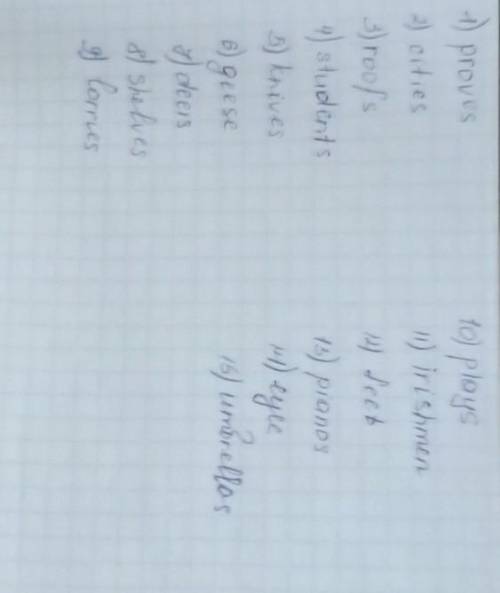 1) proves
2) cities
3) roofs
4) students
5) knives
6) geese
7) deers
8) shelves
9) lorries
10) plays
11) irishmen
12) feet
13) pianos
14) eyle
15) umbrellas